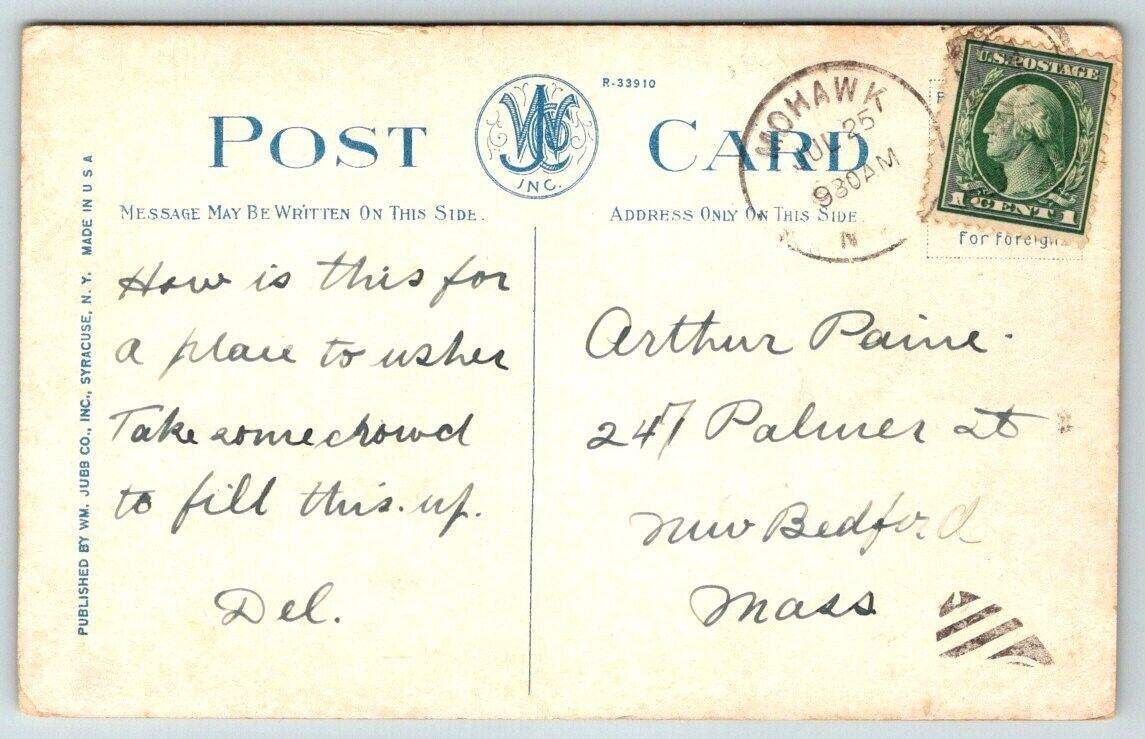 R-33910
POST CARD
WJCO
INC.
MESSAGE MAY BE WRITTEN ON THIS SIDE.
ADDRESS ONLY ON THIS SIDE
MOHAWK
JUL 25
930AM
N
U.S. POSTAGE
1 CENT 1
For foreign
PUBLISHED BY WM. JUBB CO., INC., SYRACUSE, N. Y. MADE IN U S A
How is this for
a place to usher
Take some crowd
to fill this. up.
Del.
Arthur Paine.
247 Palmer st
New Bedford
Mass